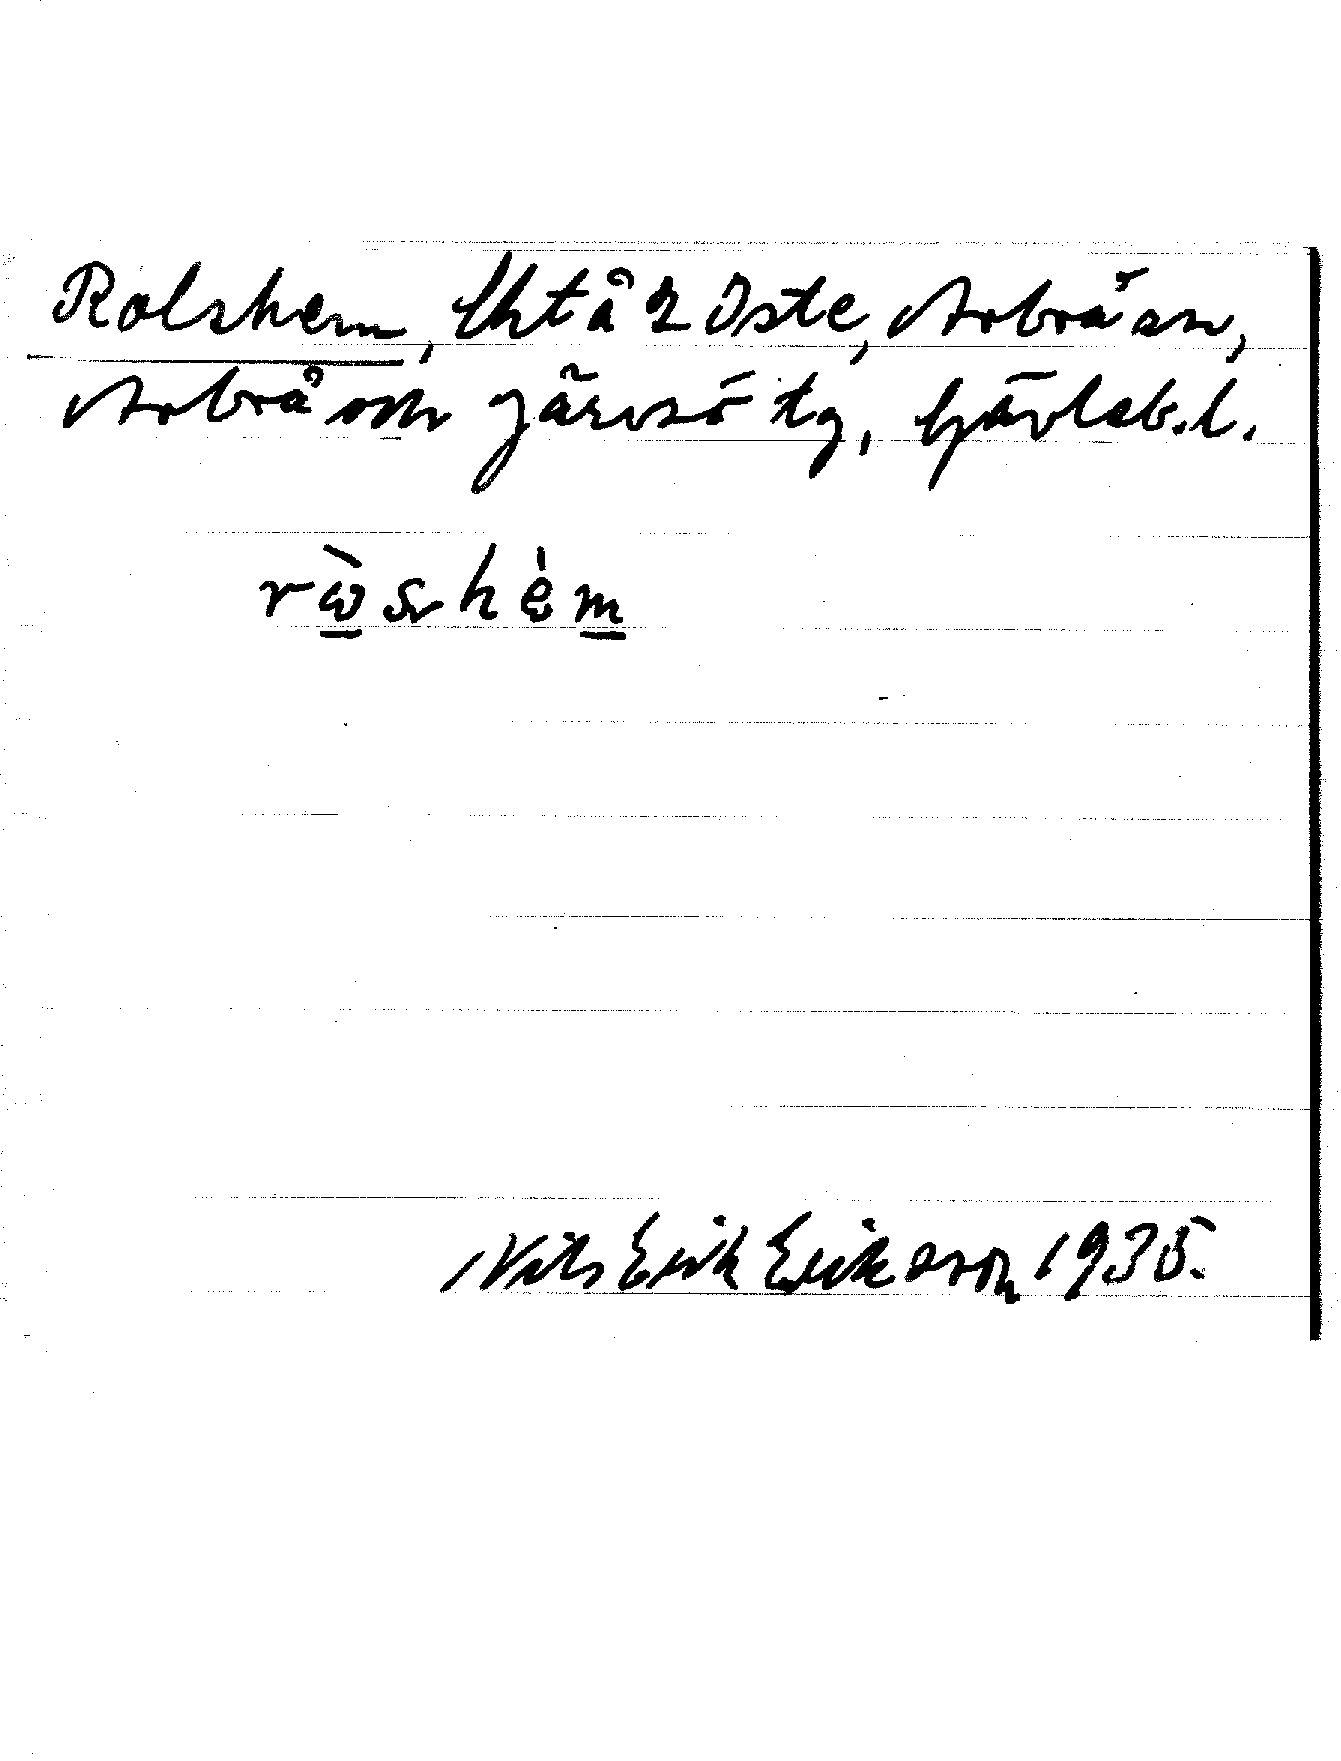 Rolshem, lht å 2 Öste, Arbrå sn,
Arbrå och Järvsö tg, Gävleb. l.
ròshèm
Nils Erik Erikson 1935.